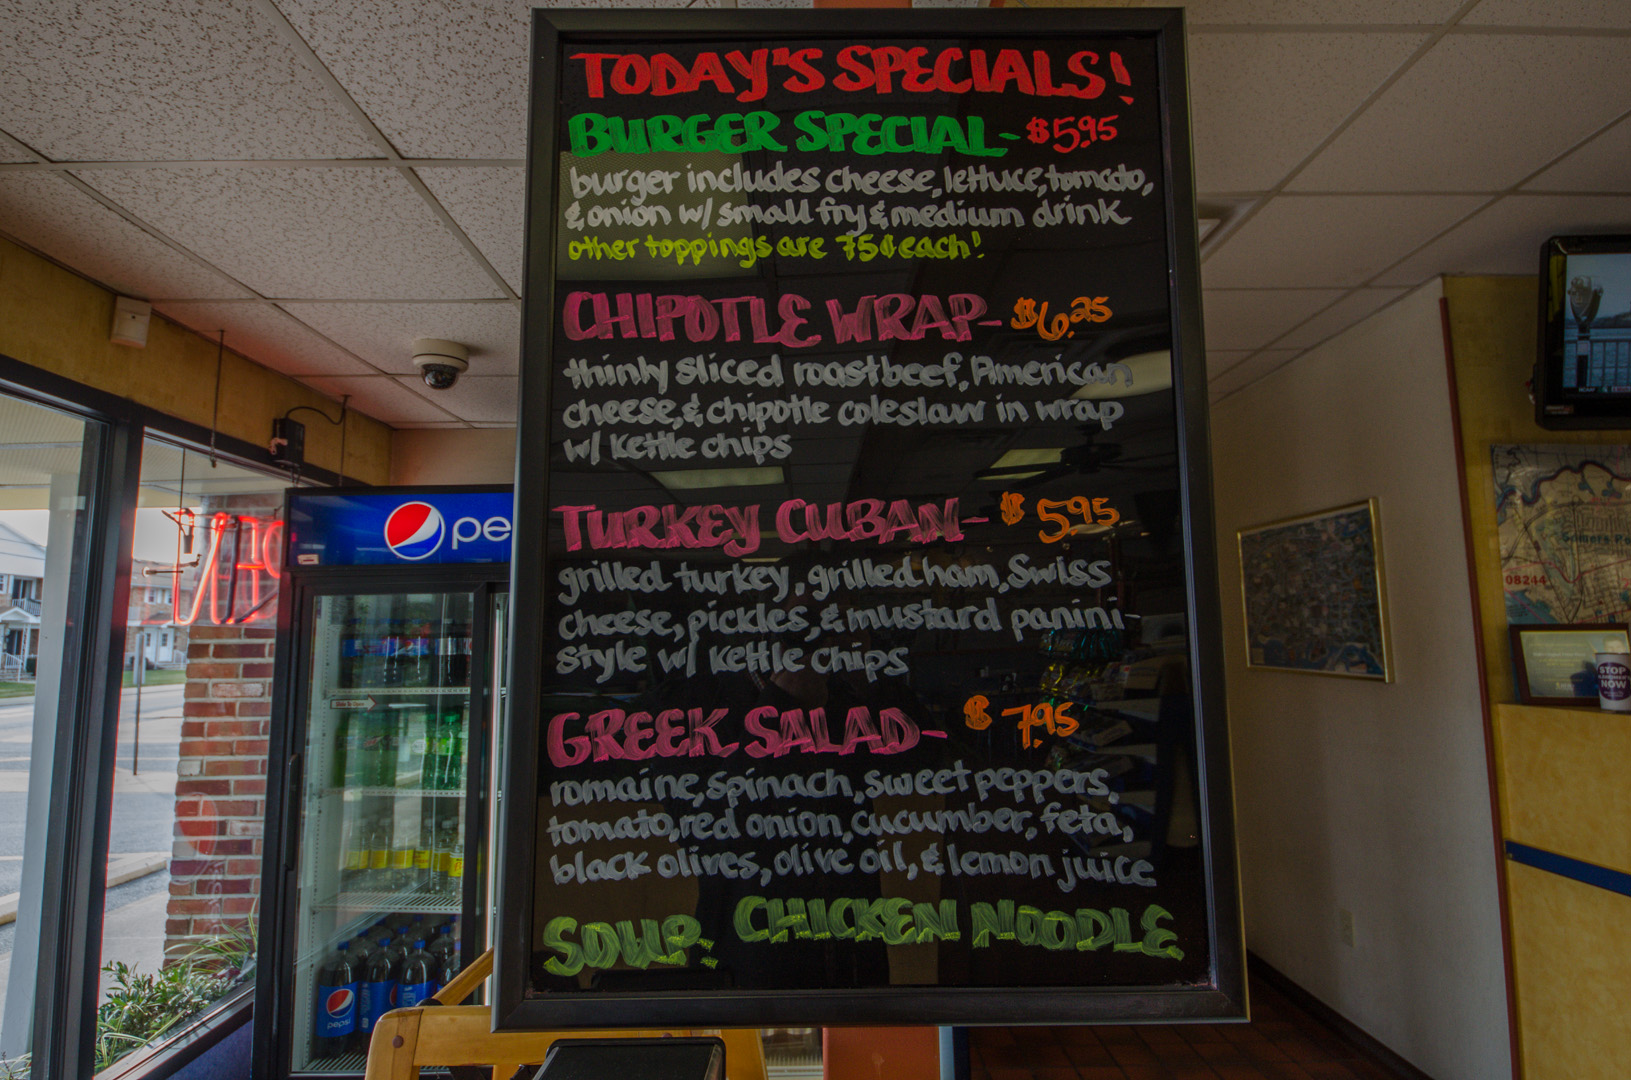 TODAY'S SPECIALS!
BURGER SPECIAL - $5.95
burger includes cheese, lettuce, tomato,
& onion w/ small fry & medium drink
other toppings are 75¢ each!
CHIPOTLE WRAP - $6.25
thinly sliced roast beef, American
cheese, & chipotle coleslaw in wrap
w/ kettle chips
TURKEY CUBAN - $5.95
grilled turkey, grilled ham, Swiss
cheese, pickles, & mustard panini-
style w/ kettle chips
GREEK SALAD - $7.95
romaine, spinach, sweet peppers,
tomato, red onion, cucumber, feta,
black olives, olive oil, & lemon juice
SOUP: CHICKEN NOODLE
pe
pepsi
08244
STOP
NOW